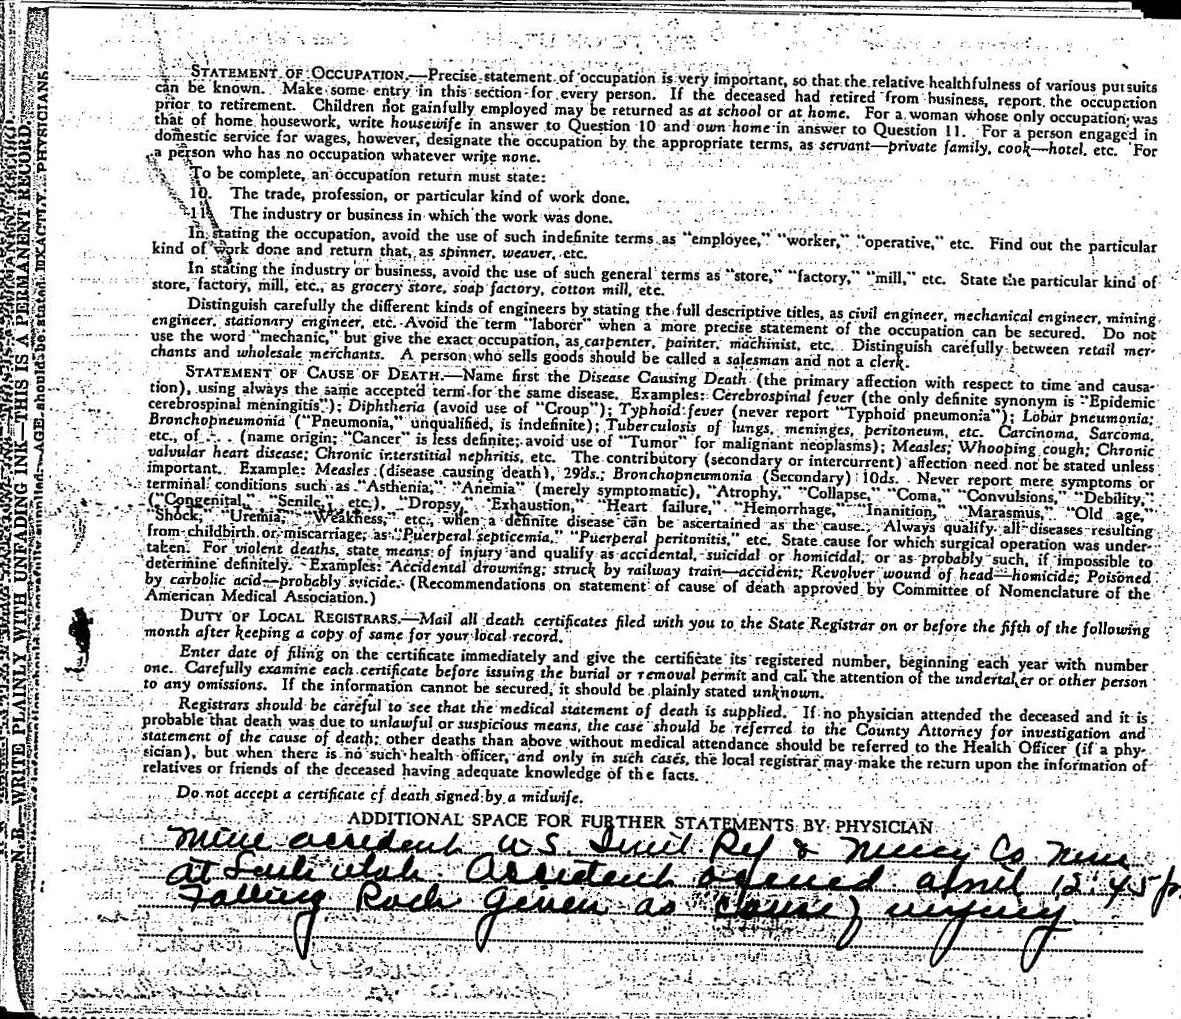 N. B.—WRITE PLAINLY WITH UNFADING INK—THIS IS A PERMANENT RECORD
AGE should be stated EXACTLY. PHYSICIANS
STATEMENT OF OCCUPATION.—Precise statement of occupation is very important, so that the relative healthfulness of various pursuits
can be known. Make some entry in this section for every person. If the deceased had retired from business, report the occupation
prior to retirement. Children not gainfully employed may be returned as at school or at home. For a woman whose only occupation was
that of home housework, write housewife in answer to Question 10 and own home in answer to Question 11. For a person engaged in
domestic service for wages, however, designate the occupation by the appropriate terms, as servant—private family, cook—hotel, etc. For
a person who has no occupation whatever write none.
To be complete, an occupation return must state:
10. The trade, profession, or particular kind of work done.
11. The industry or business in which the work was done.
In stating the occupation, avoid the use of such indefinite terms as "employee," "worker," "operative," etc. Find out the particular
kind of work done and return that, as spinner, weaver, etc.
In stating the industry or business, avoid the use of such general terms as "store," "factory," "mill," etc. State the particular kind of
store, factory, mill, etc., as grocery store, soap factory, cotton mill, etc.
Distinguish carefully the different kinds of engineers by stating the full descriptive titles, as civil engineer, mechanical engineer, mining
engineer, stationary engineer, etc. Avoid the term "laborer" when a more precise statement of the occupation can be secured. Do not
use the word "mechanic," but give the exact occupation, as carpenter, painter, machinist, etc. Distinguish carefully between retail mer-
chants and wholesale merchants. A person who sells goods should be called a salesman and not a clerk.
STATEMENT OF CAUSE OF DEATH.—Name first the Disease Causing Death (the primary affection with respect to time and causa-
tion), using always the same accepted term for the same disease. Examples: Cerebrospinal fever (the only definite synonym is "Epidemic
cerebrospinal meningitis"); Diphtheria (avoid use of "Croup"); Typhoid fever (never report "Typhoid pneumonia"); Lobar pneumonia;
Bronchopneumonia ("Pneumonia," unqualified, is indefinite); Tuberculosis of lungs, meninges, peritoneum, etc. Carcinoma, Sarcoma,
etc., of . . . (name origin; "Cancer" is less definite; avoid use of "Tumor" for malignant neoplasms); Measles; Whooping cough; Chronic
valvular heart disease; Chronic interstitial nephritis, etc. The contributory (secondary or intercurrent) affection need not be stated unless
important. Example: Measles (disease causing death), 29ds.; Bronchopneumonia (Secondary) 10ds. Never report mere symptoms or
terminal conditions such as "Asthenia," "Anemia" (merely symptomatic), "Atrophy," "Collapse," "Coma," "Convulsions," "Debility,"
("Congenital," "Senile," etc.), "Dropsy," "Exhaustion," "Heart failure," "Hemorrhage," "Inanition," "Marasmus," "Old age,"
"Shock," "Uremia," "Weakness," etc., when a definite disease can be ascertained as the cause. Always qualify all diseases resulting
from childbirth or miscarriage, as "Puerperal septicemia," "Puerperal peritonitis," etc. State cause for which surgical operation was under-
taken. For violent deaths, state means of injury and qualify as accidental, suicidal or homicidal, or as probably such, if impossible to
determine definitely. Examples: Accidental drowning; struck by railway train—accident; Revolver wound of head—homicide; Poisoned
by carbolic acid—probably suicide. (Recommendations on statement of cause of death approved by Committee of Nomenclature of the
American Medical Association.)
DUTY OF LOCAL REGISTRARS.—Mail all death certificates filed with you to the State Registrar on or before the fifth of the following
month after keeping a copy of same for your local record.
Enter date of filing on the certificate immediately and give the certificate its registered number, beginning each year with number
one. Carefully examine each certificate before issuing the burial or removal permit and call the attention of the undertaker or other person
to any omissions. If the information cannot be secured, it should be plainly stated unknown.
Registrars should be careful to see that the medical statement of death is supplied. If no physician attended the deceased and it is
probable that death was due to unlawful or suspicious means, the case should be referred to the County Attorney for investigation and
statement of the cause of death; other deaths than above without medical attendance should be referred to the Health Officer (if a phy-
sician), but when there is no such health officer, and only in such cases, the local registrar may make the return upon the information of
relatives or friends of the deceased having adequate knowledge of the facts.
Do not accept a certificate of death signed by a midwife.
ADDITIONAL SPACE FOR FURTHER STATEMENTS BY PHYSICIAN
Mine accident U.S. Ref & Co Mine
at Utah Accident April 12:45 p.
Falling Rock Given as cause of injury